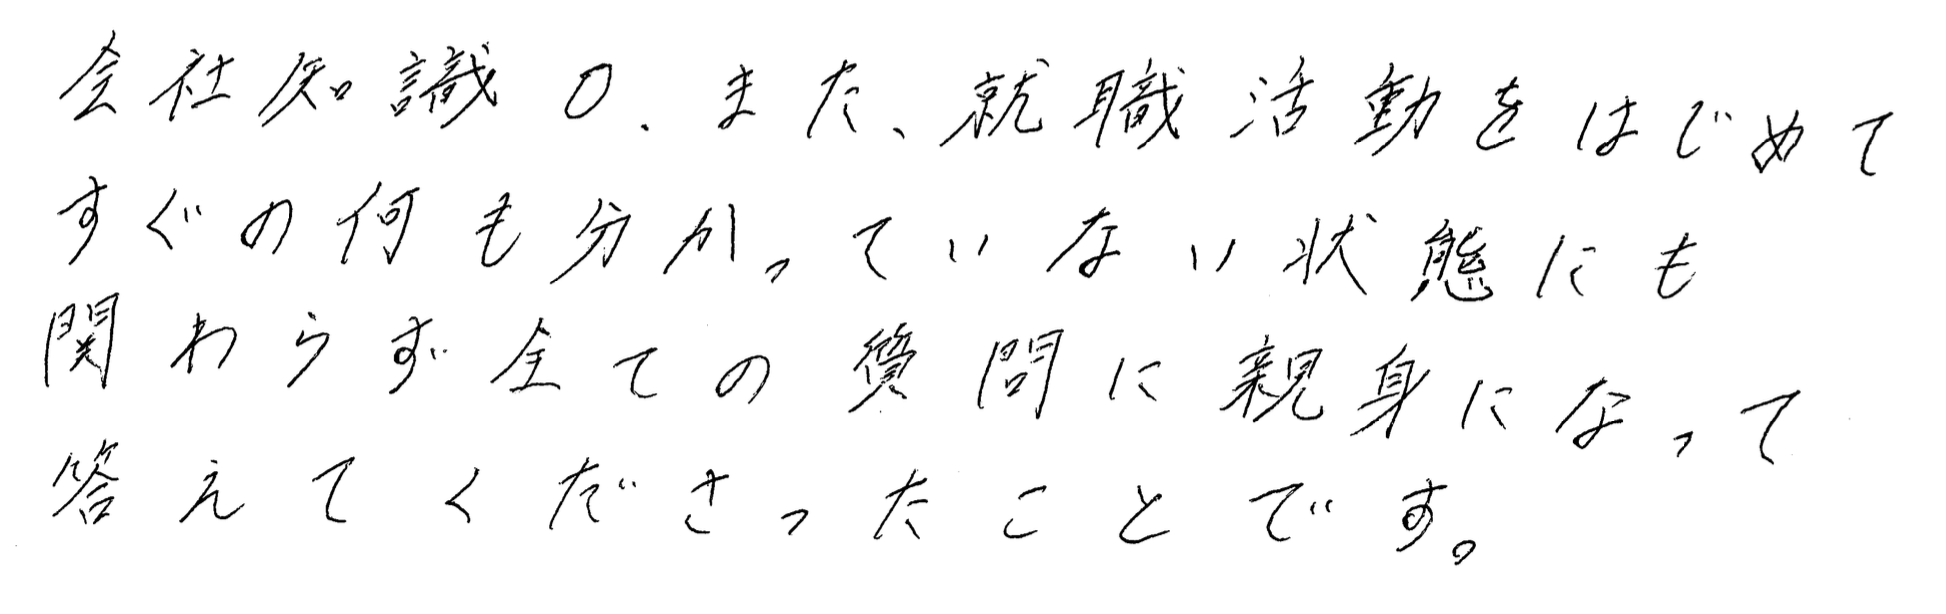 会社知識0、また、就職活動をはじめて
すぐの何も分かっていない状態にも
関わらず全ての質問に親身になって
答えてくださったことです。